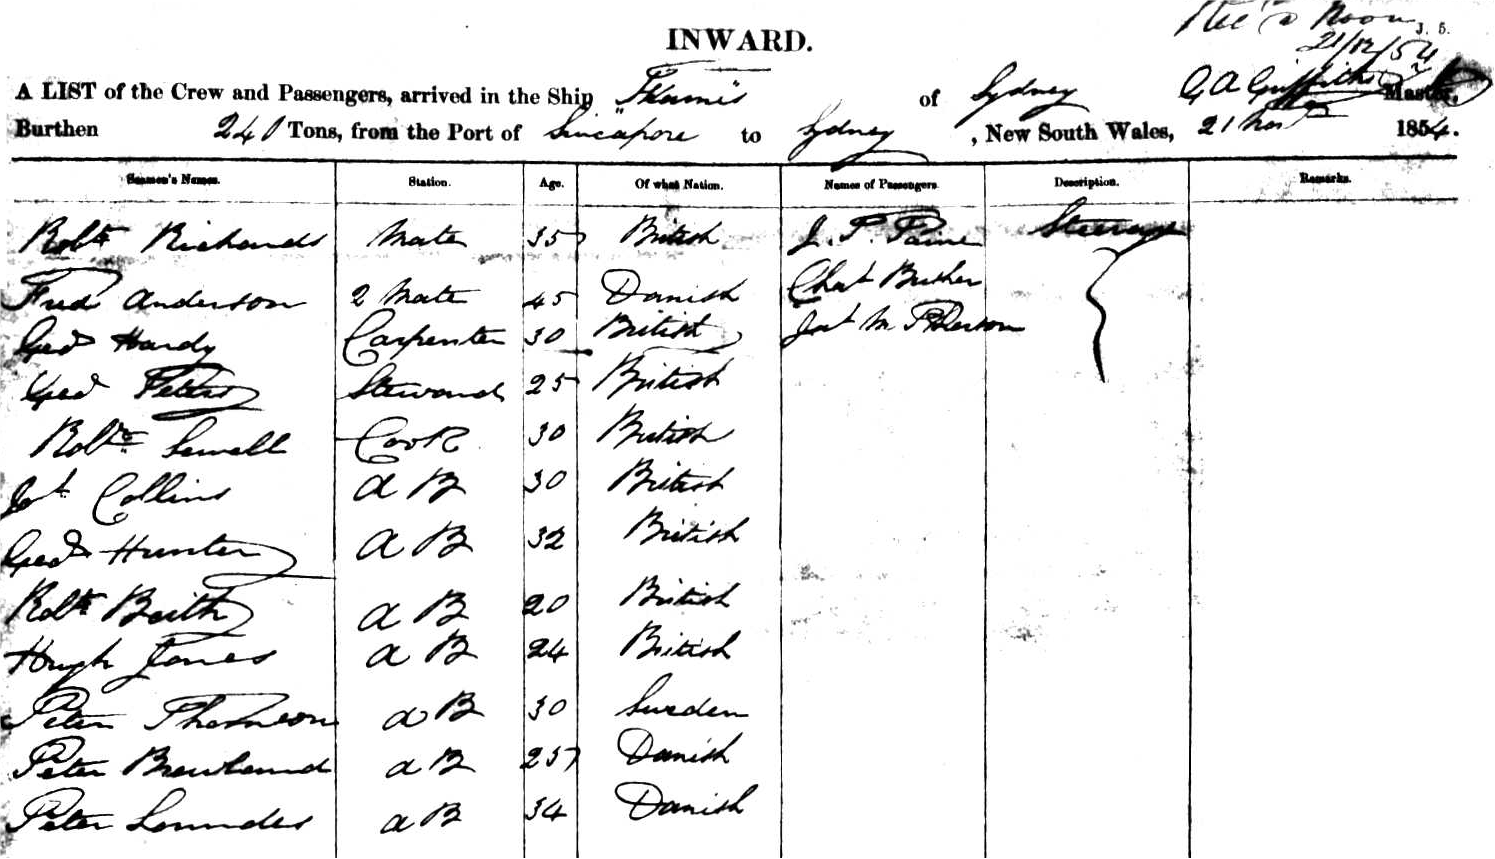 Noon
J. 5.
21/12/54
INWARD.
A LIST of the Crew and Passengers, arrived in the Ship Thamis of Sydney G A Griffiths Master,
Burthen 240 Tons, from the Port of Sincapore to Sydney, New South Wales, 21 1854.
Seamen's Names. Station. Age. Of what Nation. Names of Passengers. Description. Remarks.
Robt Richards Mate 35 British J. P. Paine Steerage
Fred Anderson 2 Mate 45 Danish Chas
Geo Hardy Carpenter 30 British M Pherson
Geo Peters Steward 25 British
Robt Sewell Cook 30 British
Collins a B 30 British
Geo Hunter a B 32 British
Robt Beith a B 20 British
Hugh Jones a B 24 British
Peter Thomson a B 30 Sweden
Peter a B 25 Danish
Peter Lowndes a B 34 Danish